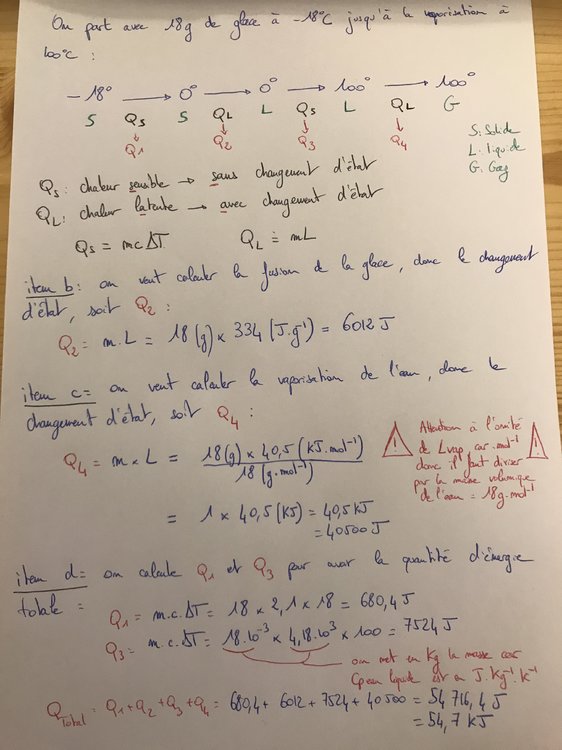 On part avec 18g de glace à -18°C jusqu'à la vaporisation à
100°C :
-18° → 0° → 0° → 100° → 100°
S Qs S QL L Qs L QL G
Q1 Q2 Q3 Q4
S: Solide
L: liquide
G: Gaz
Qs: chaleur sensible → sans changement d'état
QL: chaleur latente → avec changement d'état
Qs = mcΔT QL = mL
item b: on veut calculer la fusion de la glace, donc le changement
d'état, soit Q2 :
Q2 = m.L = 18(g) × 334 (J.g⁻¹) = 6012 J
item c = on veut calculer la vaporisation de l'eau, donc le
changement d'état, soit Q4 :
Q4 = m × L = 18(g) × 40,5 (KJ.mol⁻¹)
18 (g.mol⁻¹)
= 1 × 40,5 (KJ) = 40,5 KJ
= 40500 J
! Attention à l'unité !
de Lvap car .mol⁻¹
donc il faut diviser
par la masse volumique
de l'eau = 18g.mol⁻¹
item d = on calcule Q1 et Q3 pour avoir la quantité d'énergie
totale =
Q1 = m.c.ΔT = 18 × 2,1 × 18 = 680,4 J
Q3 = m.c.ΔT = 18.10⁻³ × 4,18.10³ × 100 = 7524 J
on met en Kg la masse car
Cp eau liquide est en J.Kg⁻¹.K⁻¹
QTotal = Q1+Q2+Q3+Q4 = 680,4 + 6012 + 7524 + 40500 = 54 716,4 J
= 54,7 KJ